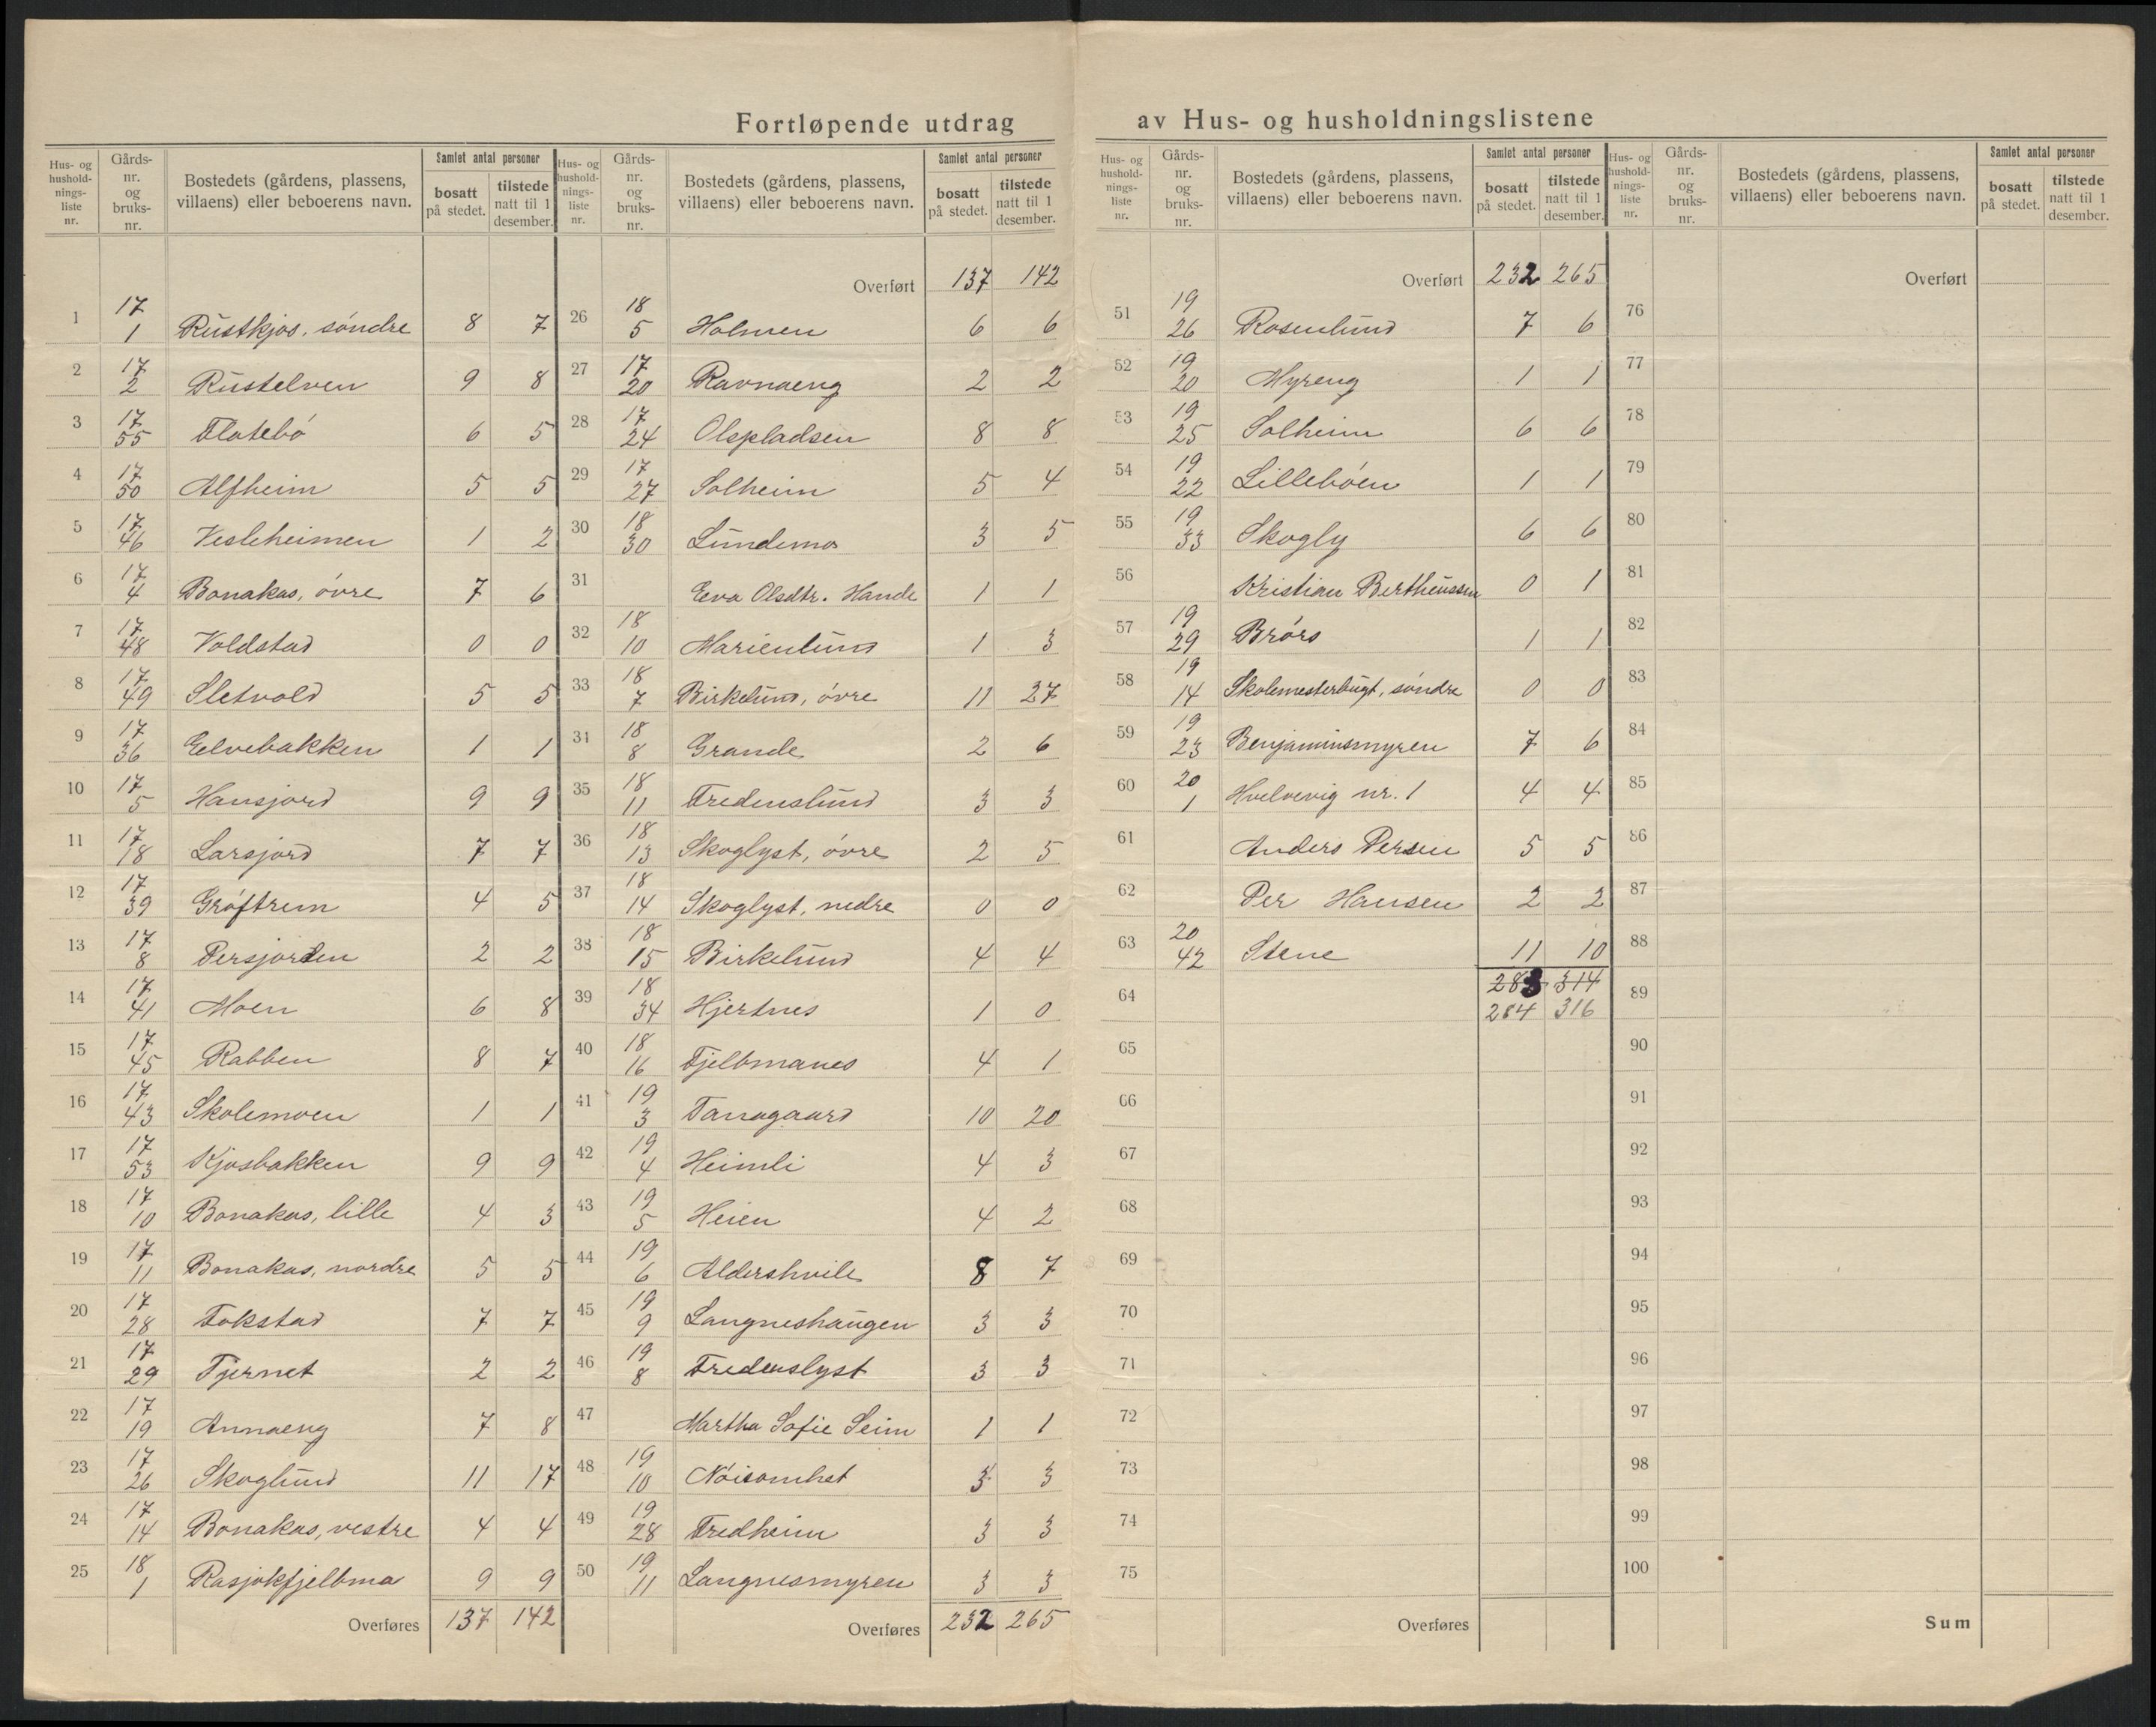 Fortløpende utdrag av Hus- og husholdningslistene
Hus- og husholdningsliste nr. | Gårds- nr. og bruks- nr. | Bostedets (gårdens, plassens, villaens) eller beboerens navn. | Samlet antal personer: bosatt på stedet. | tilstede natt til 1 desember.
1 17/1 Rustkjos, söndre 8 7
2 17/2 Rustelven 9 8
3 17/55 Flatebö 6 5
4 17/50 Alfheim 5 5
5 17/46 Vesleheimen 1 2
6 17/4 Bonakas, övre 7 6
7 17/48 Voldstad 0 0
8 17/49 Sletvold 5 5
9 17/36 Eelvebakken 1 1
10 17/5 Hansjord 9 9
11 17/18 Larsjord 7 7
12 17/39 Gröftrem 4 5
13 17/8 Persjorden 2 2
14 17/41 Moen 6 8
15 17/45 Rabben 8 7
16 17/43 Skolemoen 1 1
17 17/53 Kjosbakken 9 9
18 17/10 Bonakas, lille 4 3
19 17/11 Bonakas, nordre 5 5
20 17/28 Fokstad 7 7
21 17/29 Tjernet 2 2
22 17/19 Annaeng 7 8
23 17/26 Skoglund 11 17
24 17/14 Bonakas, vestre 4 4
25 18/1 Rasjokfjelbma 9 9
Overføres 137 142
Hus- og husholdningsliste nr. | Gårds- nr. og bruks- nr. | Bostedets (gårdens, plassens, villaens) eller beboerens navn. | Samlet antal personer: bosatt på stedet. | tilstede natt til 1 desember.
Overført 137 142
26 18/5 Holmen 6 6
27 17/20 Ravnaeng 2 2
28 17/24 Olspladsen 8 8
29 17/27 Solheim 5 4
30 18/30 Lundemo 3 5
31 Eeva Olsdtr. Hande 1 1
32 18/10 Marienlund 1 3
33 18/7 Birkelund, övre 11 27
34 18/8 Grande 2 6
35 18/11 Fredenslund 3 3
36 18/13 Skoglyst, övre 2 5
37 18/14 Skoglyst, nedre 0 0
38 18/15 Birkelund 4 4
39 18/34 Hjertnes 1 0
40 18/16 Fjelbmanes 4 1
41 19/3 Tanagaard 10 20
42 19/4 Heimli 4 3
43 19/5 Heien 4 2
44 19/6 Aldershvile 8 7
45 19/9 Langneshaugen 3 3
46 19/8 Fredenslyst 3 3
47 Martha Sofie Seim 1 1
48 19/10 Nöisomhet 3 3
49 19/28 Fredheim 3 3
50 19/11 Langnesmyren 3 3
Overføres 232 265
Hus- og husholdningsliste nr. | Gårds- nr. og bruks- nr. | Bostedets (gårdens, plassens, villaens) eller beboerens navn. | Samlet antal personer: bosatt på stedet. | tilstede natt til 1 desember.
Overført 232 265
51 19/26 Rosenlund 7 6
52 19/20 Myreng 1 1
53 19/25 Solheim 6 6
54 19/22 Lillebóen 1 1
55 19/33 Skogly 6 6
56 Kristian Bertheussen 0 1
57 19/29 Brörs 1 1
58 19/14 Skolemesterbugt, söndre 0 0
59 19/23 Benjaminsmyren 7 6
60 20/1 Hvelvevig nr. 1 4 4
61 Anders Persen 5 5
62 Per Hansen 2 2
63 20/42 Stene 11 10
283 314
64 284 316
65
66
67
68
69
70
71
72
73
74
75
Overføres
Hus- og husholdningsliste nr. | Gårds- nr. og bruks- nr. | Bostedets (gårdens, plassens, villaens) eller beboerens navn. | Samlet antal personer: bosatt på stedet. | tilstede natt til 1 desember.
Overført
76
77
78
79
80
81
82
83
84
85
86
87
88
89
90
91
92
93
94
95
96
97
98
99
100
Sum